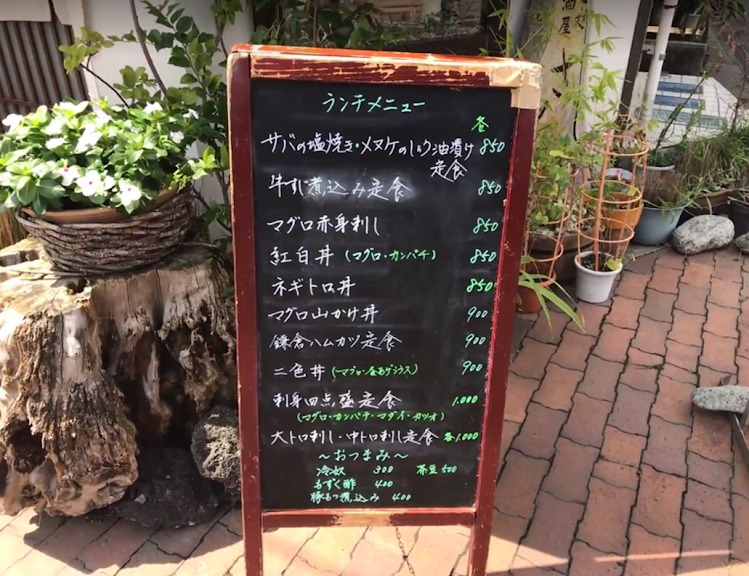 酒屋
ランチメニュー
各
サバの塩焼き・メヌケのしょう油漬け 850
定食
牛すじ煮込み定食 850
マグロ赤身刺し 850
紅白丼(マグロ・カンパチ) 850
ネギトロ丼 850
マグロ山かけ丼 900
鎌倉ハムカツ定食 900
二色丼(マグロ・釜あげシラス) 900
刺身四点盛定食 1.000
(マグロ・カンパチ・マダイ・カツオ)
大トロ刺し・中トロ刺し定食 各1.000
～おつまみ～
冷奴 300 茶豆 500
もずく酢 400
豚もつ煮込み 400